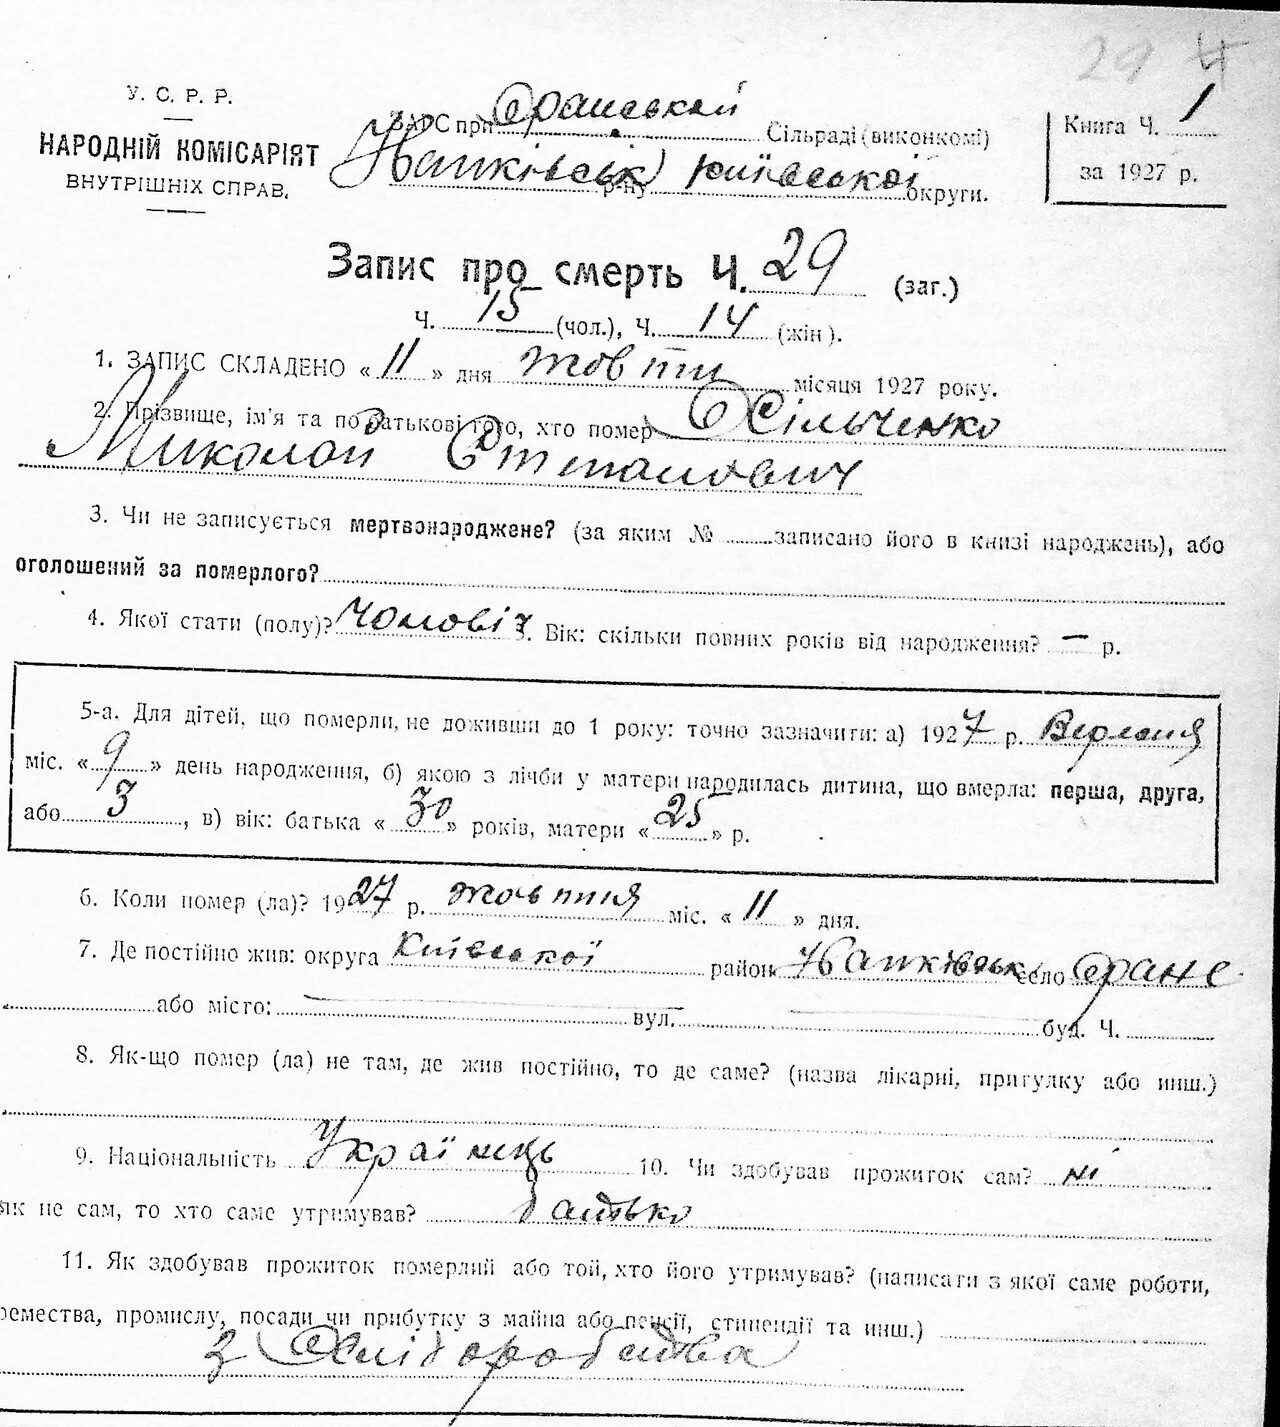 29 4
У. С. Р. Р.
НАРОДНІЙ КОМІСАРІЯТ
ВНУТРІШНІХ СПРАВ.
ЗАГС при Сільраді (виконкомі)
р-ну Київської округи.
Книга Ч. 1
за 1927 р.
Запис про смерть Ч. 29 (заг.)
Ч. 15 (чол.), Ч. 14 (жін).
1. ЗАПИС СКЛАДЕНО « 11 » дня жовтня місяця 1927 року.
2. Прізвище, ім'я та по батькові того, хто помер Осільченко
Миколай Степанович
3. Чи не записується мертвонароджене? (за яким № записано його в книзі народжень), або
оголошений за померлого?
4. Якої стати (полу)? Чоловіч 5. Вік: скільки повних років від народження? — р.
5-а. Для дітей, що померли, не доживши до 1 року: точно зазначити: а) 1927 р. Вересня
міс. « 9 » день народження, б) якою з лічби у матери народилась дитина, що вмерла: перша, друга,
або 3, в) вік: батька « 30 » років, матери « 25 » р.
6. Коли помер (ла)? 1927 р. жовтня міс. « 11 » дня.
7. Де постійно жив: округа Київської район село
або місто: вул. буд. Ч.
8. Як-що помер (ла) не там, де жив постійно, то де саме? (назва лікарні, притулку або инш.)
9. Національність Українець 10. Чи здобував прожиток сам? ні
як не сам, то хто саме утримував? батько
11. Як здобував прожиток померлий або той, хто його утримував? (написати з якої саме роботи,
ремества, промислу, посади чи прибутку з майна або пенсії, стипендії та инш.)
з Хліборобства